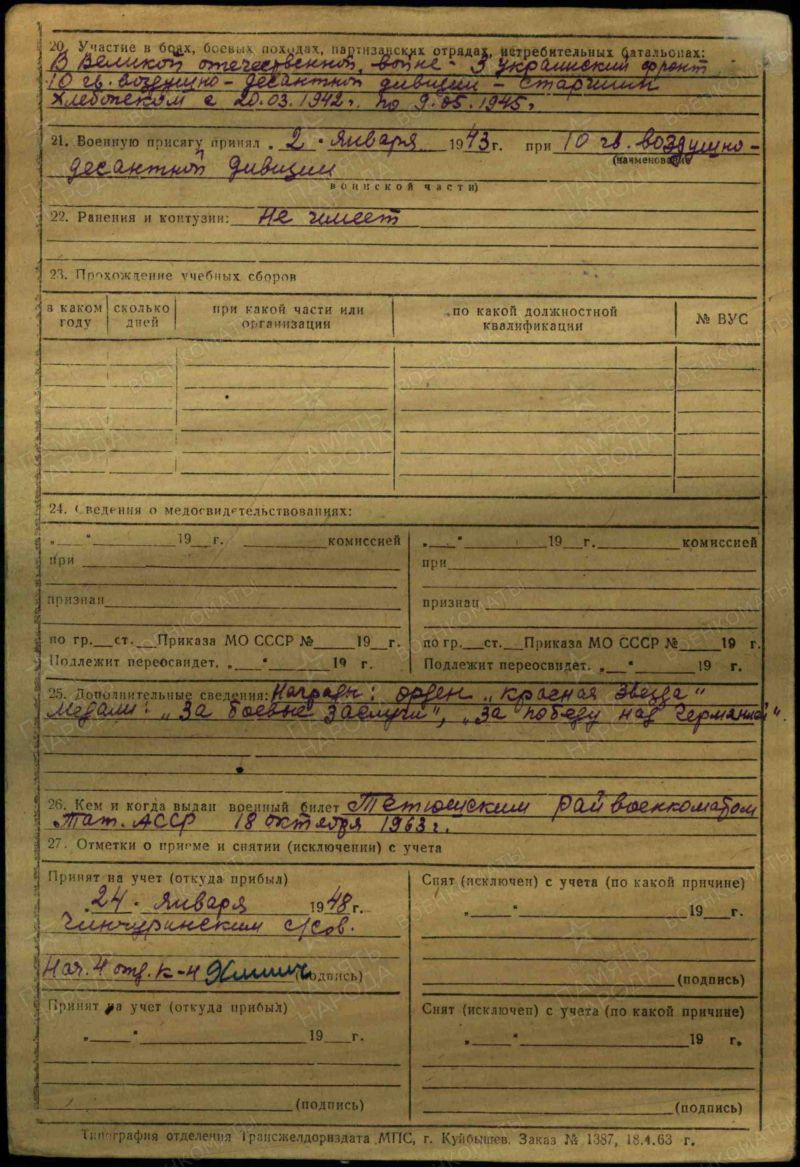 20. Участие в боях, боевых походах, партизанских отрядах, истребительных батальонах:
В Великой отечественной войне - 3 украинский фронт
10 гв. воздушно - десантной дивизии - старшим
хлебопеком с 20.03.1942г. по 9.05.1945г
21. Военную присягу принял „ 2 “ января 1943 г. при 10 гв. воздушно-
(наименование
десантной дивизии
воинской части)
22. Ранения и контузии: Не имеет
23. Прохождение учебных сборов
в каком году сколько дней при какой части или организации по какой должностной квалификации № ВУС
24. Сведения о медосвидетельствованиях:
„ “ 19 г. комиссией „ “ 19 г. комиссией
при при
признан признан
по гр. ст. Приказа МО СССР № 19 г. по гр. ст. Приказа МО СССР № 19 г.
Подлежит переосвидет. „ “ 19 г. Подлежит переосвидет. „ “ 19 г.
25. Дополнительные сведения: Награды: орден „красная звезда“
медали: „За боевые заслуги“, „За победу над Германией“.
26. Кем и когда выдан военный билет Тетюшским райвоенкоматом
Тат. АССР 18 октября 1963 г.
27. Отметки о приеме и снятии (исключении) с учета
Принят на учет (откуда прибыл) Снят (исключен) с учета (по какой причине)
„ 24 “ января 1948 г. „ “ 19 г.
с/сов.
Нач. 4 отд. к-н (подпись) (подпись)
Принят на учет (откуда прибыл) Снят (исключен) с учета (по какой причине)
„ “ 19 г. „ “ 19 г.
(подпись) (подпись)
Типография отделения Трансжелдориздата МПС, г. Куйбышев. Заказ № 1387, 18.4.63 г.
ПАМЯТЬ НАРОДА
ВОЕНКОМАТЫ